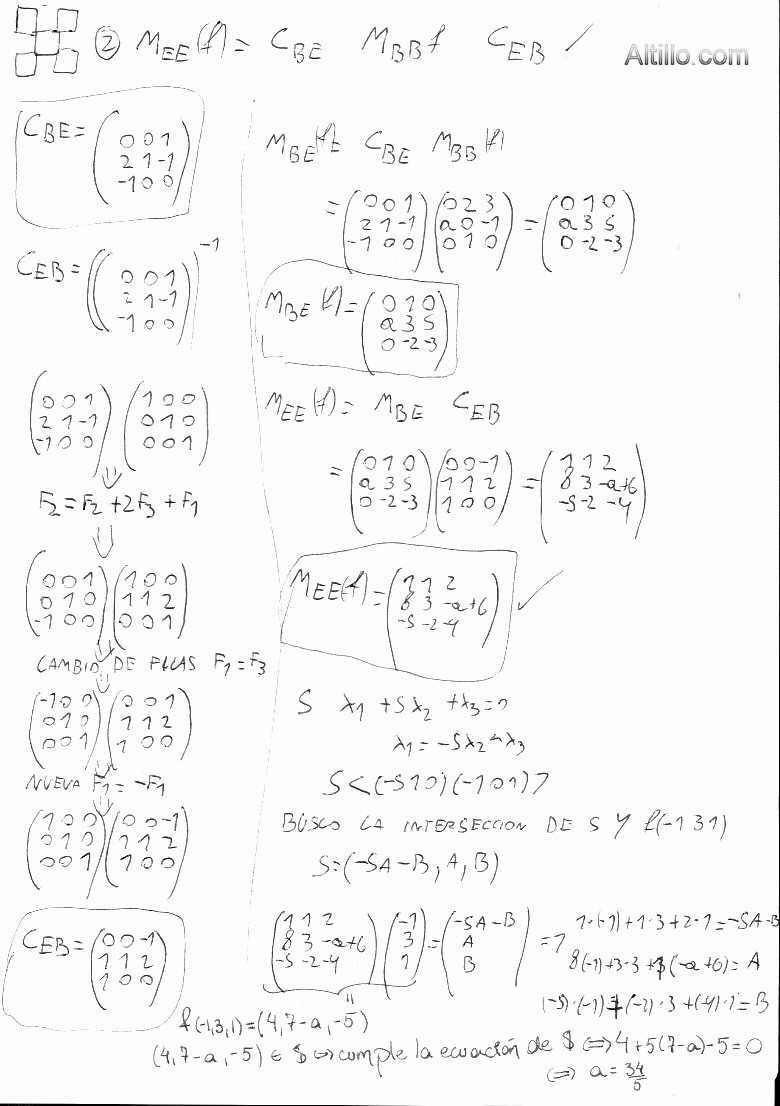 ② M_EE(f) = C_BE M_BB f C_EB ✓
Altillo.com
C_BE = (0 0 1
2 1 -1
-1 0 0)
C_EB = ((0 0 1
2 1 -1
-1 0 0))^-1
(0 0 1 (1 0 0
2 1 -1 0 1 0
-1 0 0) 0 0 1)
F2 = F2 + 2F3 + F1
(0 0 1 (1 0 0
0 1 0 1 1 2
-1 0 0) 0 0 1)
CAMBIO DE FILAS F1 = F3
(-1 0 0 (0 0 1
0 1 0 1 1 2
0 0 1) 1 0 0)
NUEVA F1 = -F1
(1 0 0 (0 0 -1
0 1 0 1 1 2
0 0 1) 1 0 0)
C_EB = (0 0 -1
1 1 2
1 0 0)
M_BE(f) = C_BE M_BB(f)
= (0 0 1 (0 2 3 = (0 1 0
2 1 -1 a 0 -1 a 3 5
-1 0 0) 0 1 0) 0 -2 -3)
M_BE(f) = (0 1 0
a 3 5
0 -2 -3)
M_EE(f) = M_BE C_EB
= (0 1 0 (0 0 -1 = (1 1 2
a 3 5 1 1 2 8 3 -a+6
0 -2 -3) 1 0 0) -5 -2 -4)
M_EE(f) = (1 1 2
8 3 -a+6
-5 -2 -4) ✓
S x1 + 5x2 + x3 = 0
x1 = -5x2 - x3
S<(-5 1 0)(-1 0 1)>
BUSCO LA INTERSECCION DE S Y f(-1 3 1)
S = (-5A-B, A, B)
(1 1 2 (-1 = (-5A-B => 1·(-1)+1·3+2·1=-5A-B
8 3 -a+6 3 A 8(-1)+3·3+1(-a+6)=A
-5 -2 -4) 1) B) (-5)·(-1)+(-2)·3+(-4)·1=B
f(-1,3,1)=(4,7-a,-5)
(4,7-a,-5) ∈ S ⇔ cumple la ecuación de S ⇔ 4+5(7-a)-5=0
⇔ a=34/5